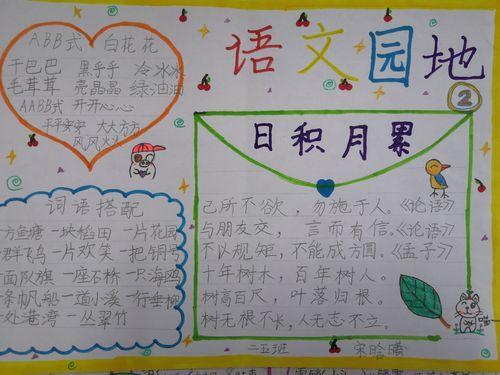 语文园地
②
ABB式 白花花
干巴巴 黑乎乎 冷冰冰
毛茸茸 亮晶晶 绿油油
AABB式 开开心心
平平安安 大大方方
风风火火
词语搭配
一方鱼塘 一块稻田 一片花园
一群飞鸟 一片欢笑 一把铜号
一面队旗 一座石桥 一只海鸥
一条帆船 一道小溪 一行垂柳
一处港湾 一丛翠竹
日积月累
己所不欲，勿施于人。《论语》
与朋友交，言而有信。《论语》
不以规矩，不能成方圆。《孟子》
十年树木，百年树人。
树高百尺，叶落归根。
树无根不长，人无志不立。
二五班